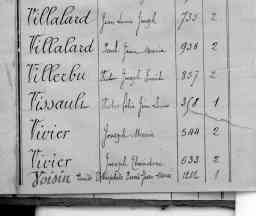 Villalard Jean Louis Joseph 735 2
Villalard Paul Jean Marie 936 2
Villerbu Victor Joseph 857 2
Vissault Victor Félix Jean Louis 358 1
Vivier Joseph Marie 544 2
Vivier Joseph Théodore 633 2
Voisin Jean Marie 1212 1